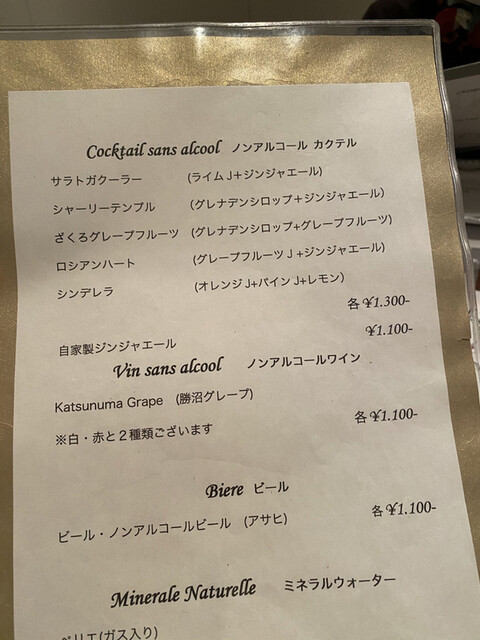 Cocktail sans alcool ノンアルコール カクテル
サラトガクーラー (ライムJ+ジンジャエール)
シャーリーテンプル (グレナデンシロップ+ジンジャエール)
ざくろグレープフルーツ (グレナデンシロップ+グレープフルーツ)
ロシアンハート (グレープフルーツJ+ジンジャエール)
シンデレラ (オレンジJ+パインJ+レモン)
各¥1.300-
自家製ジンジャエール ¥1.100-
Vin sans alcool ノンアルコールワイン
Katsunuma Grape (勝沼グレープ)
※白・赤と2種類ございます 各¥1.100-
Biere ビール
ビール・ノンアルコールビール (アサヒ) 各¥1.100-
Minerale Naturelle ミネラルウォーター
ペリエ(ガス入り)